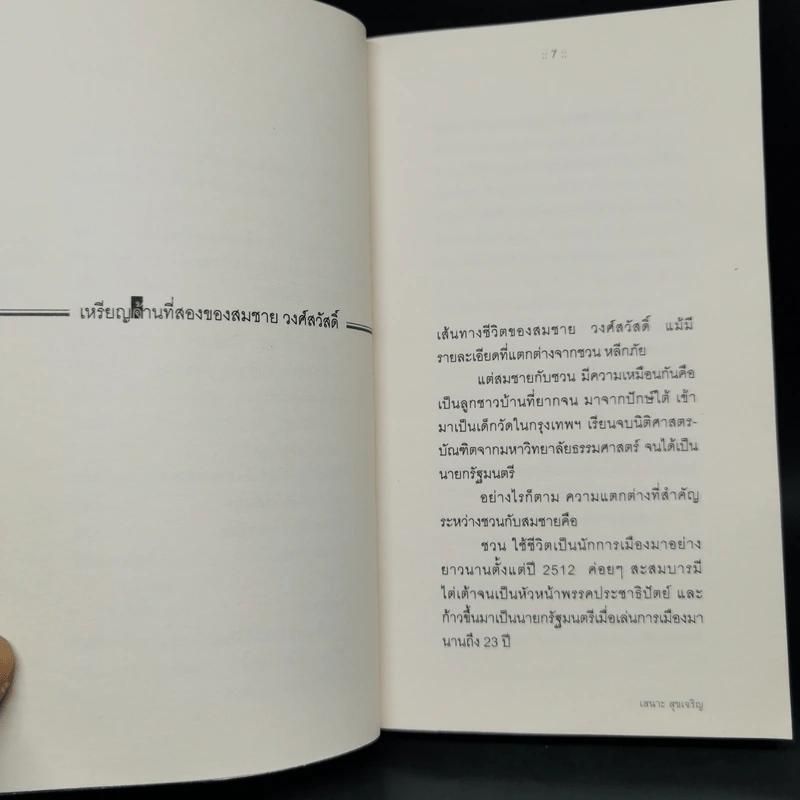 เหรียญด้านที่สองของสมชาย วงศ์สวัสดิ์
:: 7 ::
เส้นทางชีวิตของสมชาย วงศ์สวัสดิ์ แม้มี
รายละเอียดที่แตกต่างจากชวน หลีกภัย
แต่สมชายกับชวน มีความเหมือนกันคือ
เป็นลูกชาวบ้านที่ยากจน มาจากปักษ์ใต้ เข้า
มาเป็นเด็กวัดในกรุงเทพฯ เรียนจบนิติศาสตร-
บัณฑิตจากมหาวิทยาลัยธรรมศาสตร์ จนได้เป็น
นายกรัฐมนตรี
อย่างไรก็ตาม ความแตกต่างที่สำคัญ
ระหว่างชวนกับสมชายคือ
ชวน ใช้ชีวิตเป็นนักการเมืองมาอย่าง
ยาวนานตั้งแต่ปี 2512 ค่อยๆ สะสมบารมี
ไต่เต้าจนเป็นหัวหน้าพรรคประชาธิปัตย์ และ
ก้าวขึ้นมาเป็นนายกรัฐมนตรีเมื่อเล่นการเมืองมา
นานถึง 23 ปี
เสนาะ สุขเจริญ